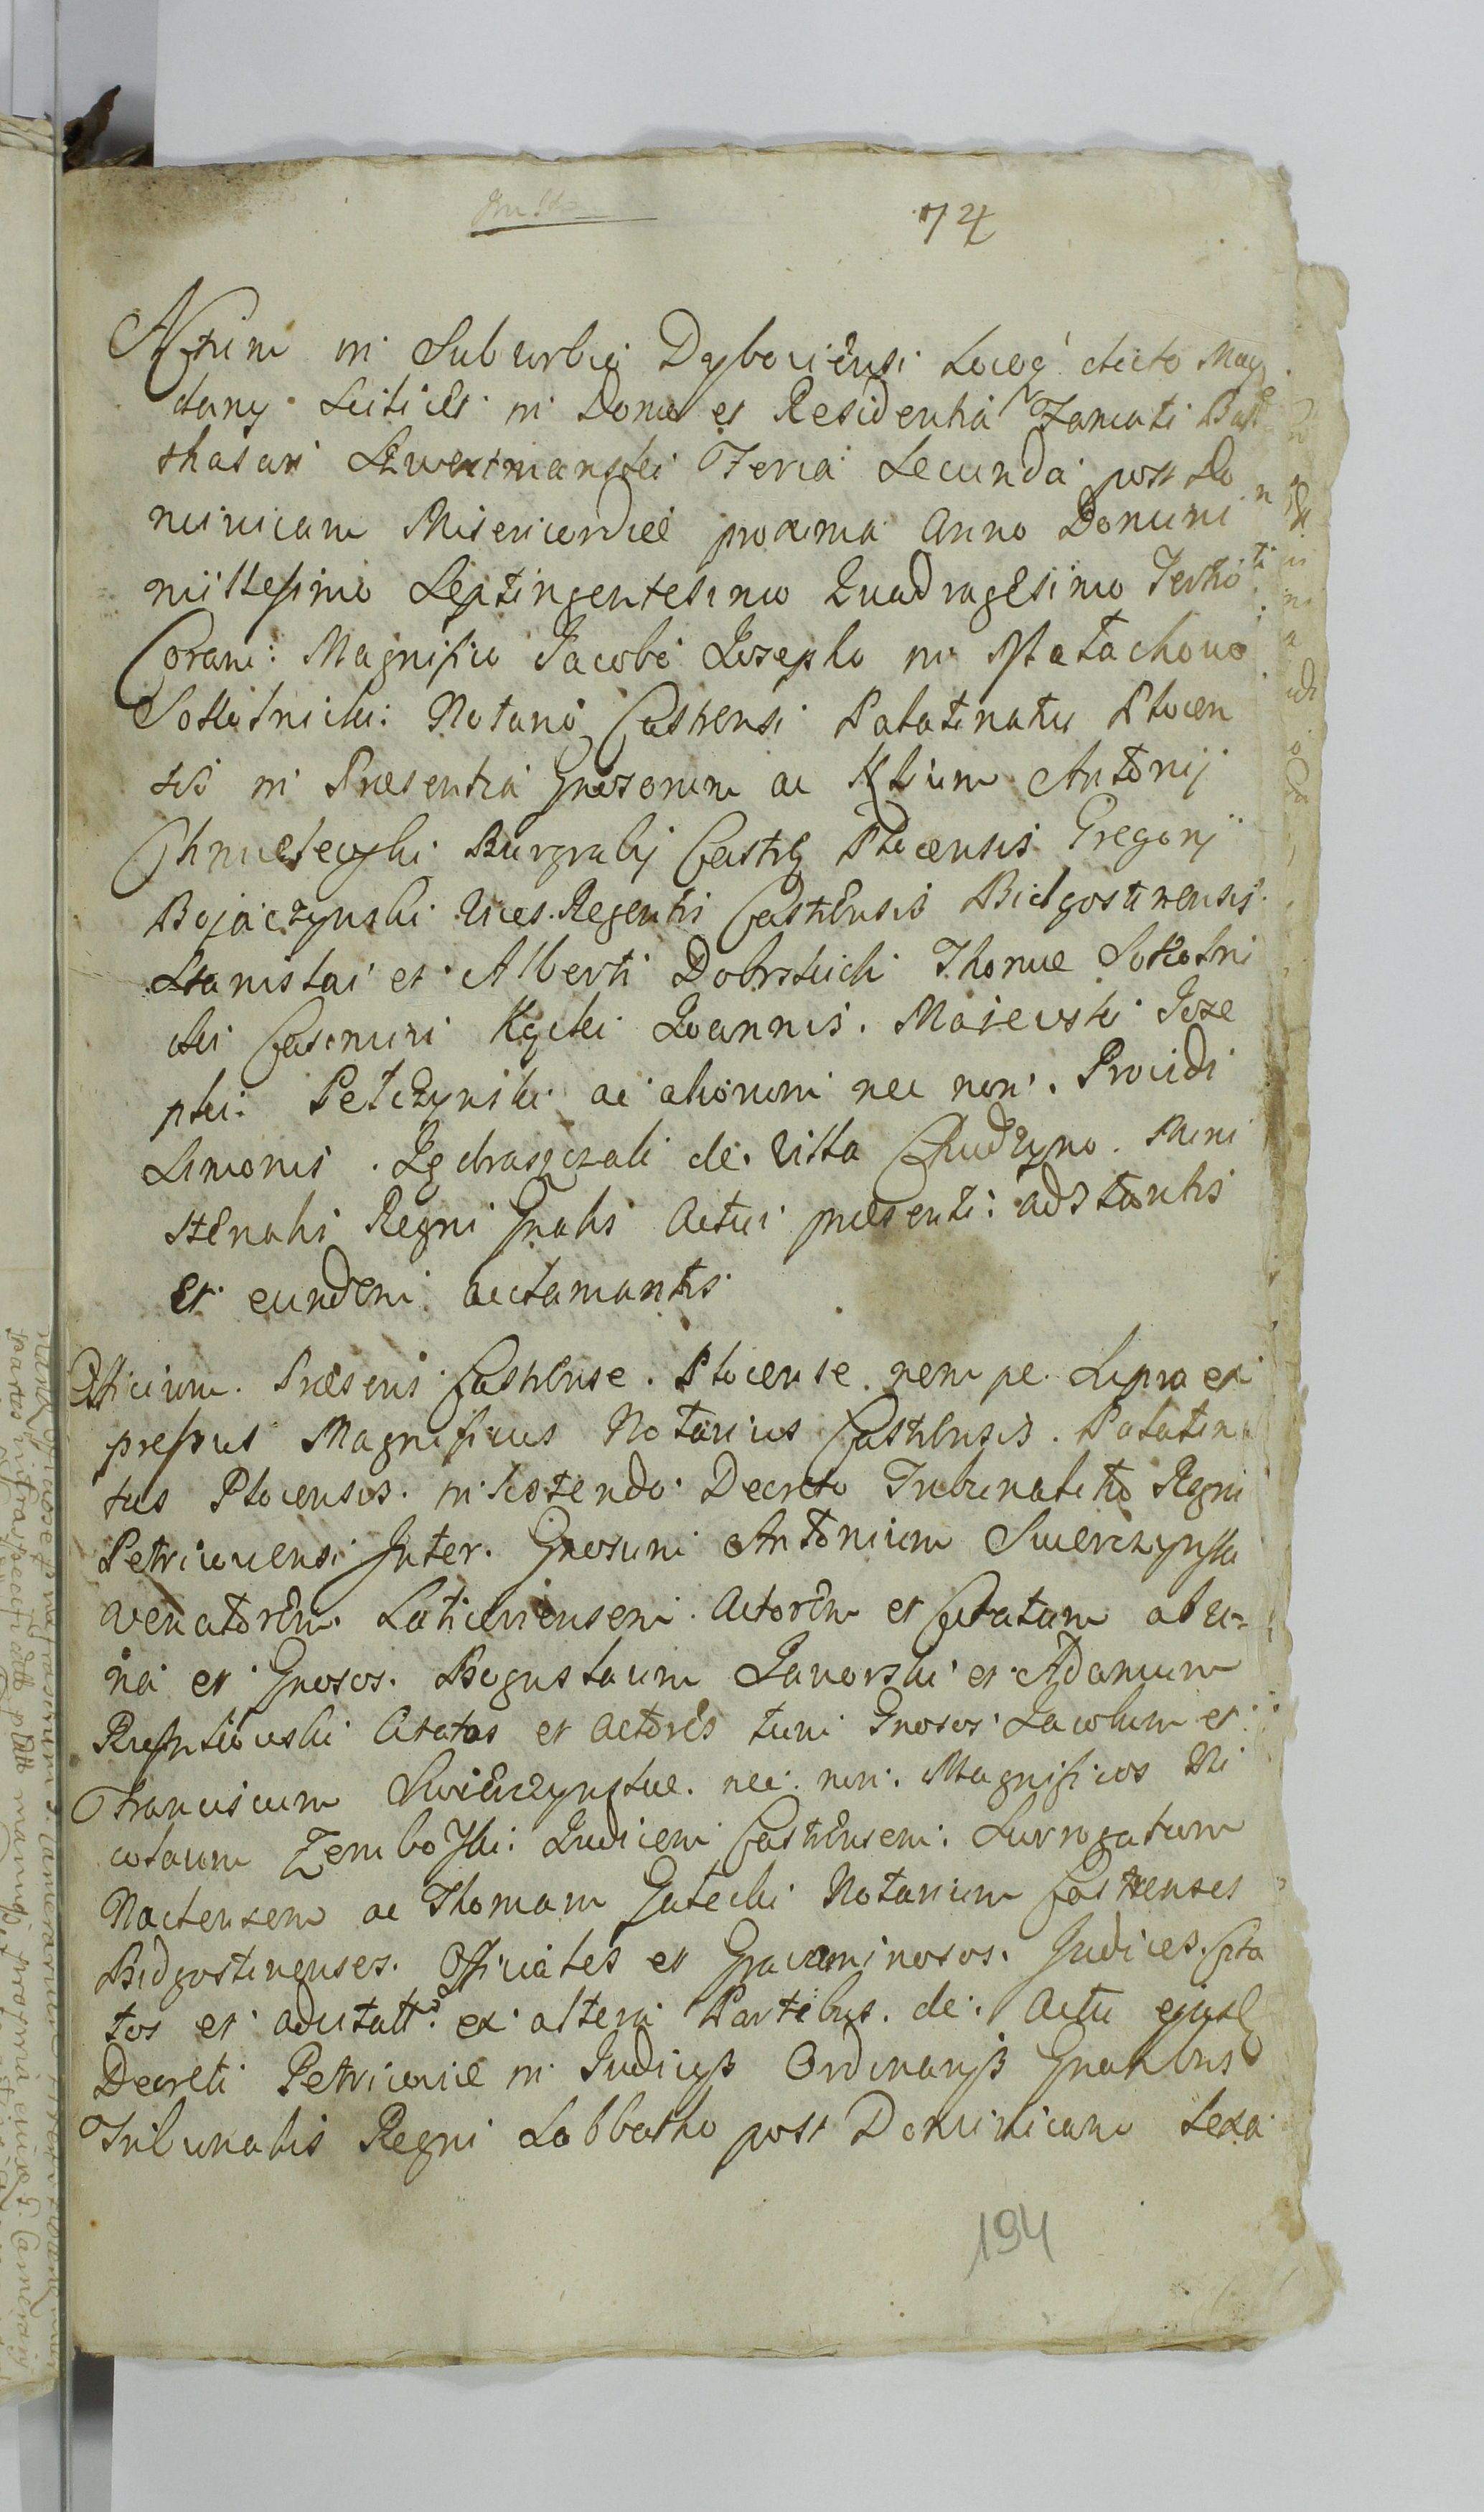 74
Actum in Suburbio Dyboviensi Locoq dicto May
dany Scilicet in Domo et Residentia Famati Balt
thasari Szwertmanski Feria Secunda post Do
minicam Misericordiae proxima Anno Domini
millesimo Septingentesimo Quadragesimo Tertio
Coram Magnifico Jacobo Josepho in Małachowo
Sokolnicki Notario Castrensi Palatinatus Plocen
sis in Praesentia Gnosorum ac Nblium Antonij
Chmielewski Burgrabij Castri Plocensis Gregorij
Bojaczynski Vices Regentis Castrensis Bidgostiensis
Stanislai et Alberti Dobrskich Thomae Sokolni
cki Casimiri Kęcki Joannis Majewski Jose
phi Pełczynski ac aliorum nec non Providi
Simonis Jędraszczak de Villa Chudzyno Mini
sterialis Regni Gnalis Actui praesenti adstantis
et eundem acclamantis
Officium Praesens Castrense Plocense nempe Supra ex
pressus Magnificus Notarius Castrensis Palatina
tus Plocensis insistendo Decreto Tribunalitio Regni
Petricoviensi Inter Gnosum Antonium Swierczynski
venatorem Laticzoviensem Actorem et Citatum ab u-
na et Gnosos Boguslaum Jaworski et Adamum
Citatos et Actores tum Gnosos Jacobum et
Franciscum Swierczynskie nec non Magnificos Ni
colaum Zemboski Judicem Castrensem Surrogatum
Naclensem ac Thomam Gałecki Notarium Castrenses
Bidgostienses Officiales et Gravaminosos Judices Cita
tos et adcitatt ex altera Partibus de Actu ejusd
Decreti Petricoviae in Judicijs Ordinarijs Gnalibus
Tribunalis Regni Sabbatho post Dominicam Sexa
194